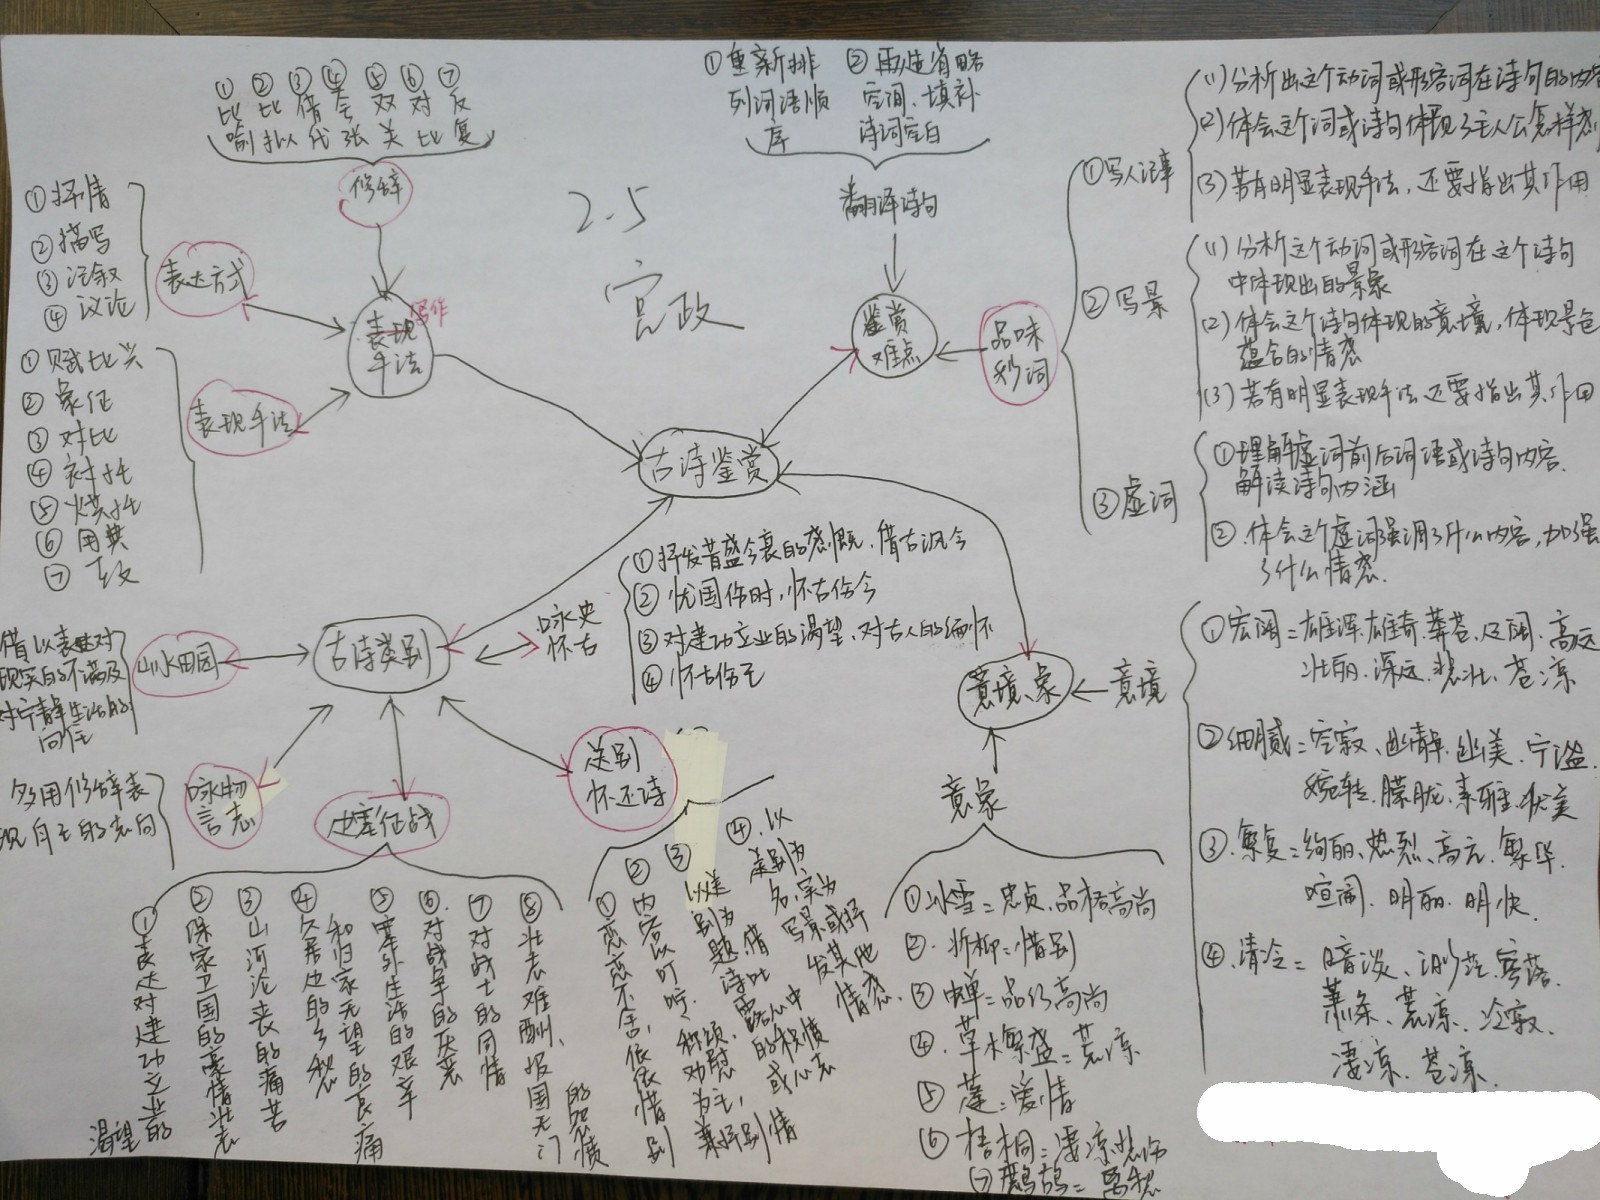 ① ② ③ ④ ⑤ ⑥ ⑦
比 比 借 夸 双 对 反
喻 拟 代 张 关 比 复
修辞
①抒情
②描写
③记叙
④议论
表达方式
①赋比兴
②象征
③对比
④衬托
⑤烘托
⑥用典
⑦
表现手法
写作
手法
2.5
宫政
①重新排
列词语顺
序
②再造省略
空间、填补
诗词空白
翻译诗句
鉴赏
难点
品味
秒词
①写人记事
(1)分析出这个动词或形容词在诗句的内容
(2)体会这个词或诗句体现了主人公怎样
(3)若有明显表现手法,还要指出其作用
②写景
(1)分析这个动词或形容词在这个诗句
中体现出的景象
(2)体会这个诗句体现的意境,体现景色
蕴含的情感
(3)若有明显表现手法还要指出其作用
③虚词
①理解虚词前后词语或诗句内容.
解读诗句内涵
②.体会这个虚词强调了什么内容,加强
了什么情感.
古诗鉴赏
古诗类别
咏史
怀古
①抒发昔盛今衰的感慨、借古讽今
②忧国伤时,怀古伤今
③对建功立业的渴望、对古人的缅怀
④怀古伤己
山水田园
借以表达对
现实的不满及
对宁静生活的
向往
咏物
言志
多用修辞表
现自己的志向
边塞征战
①表达对建功立业的
渴望
②保家卫国的豪情壮志
③山河沦丧的痛苦
④久居边的乡愁
和归家无望的哀痛
⑤塞外生活的艰辛
⑥.对战争的厌恶
⑦对战士的同情
⑧壮志难酬、报国无门
的怨愤
送别
怀还诗
①恋恋不舍,依依惜别
②内容以叮咛、称颂、劝慰为主,兼抒别情
③以送别为题 借诗吐露心中的积愤或心志
④.以送别为名,实为写景或抒发其他情感.
意境、象
意境
①宏阔=雄浑.雄奇.莽苍.辽阔.高远
壮丽.深远.悲壮、苍凉
②细腻=空寂、幽静.幽美.宁谧.
婉转.朦胧.素雅.优美
③.繁复=绚丽、热烈、高亢.繁华.
喧闹.明丽.明快.
④.清冷=暗淡、迷茫.寥落.
萧条、荒凉.冷寂.
凄凉、苍凉.
意象
①冰雪=忠贞、品格高尚
②.折柳=惜别
③蝉=品行高尚
④.草木繁盛=荒凉
⑤莲=爱情
⑥梧桐=凄凉悲伤
⑦鹧鸪=离愁